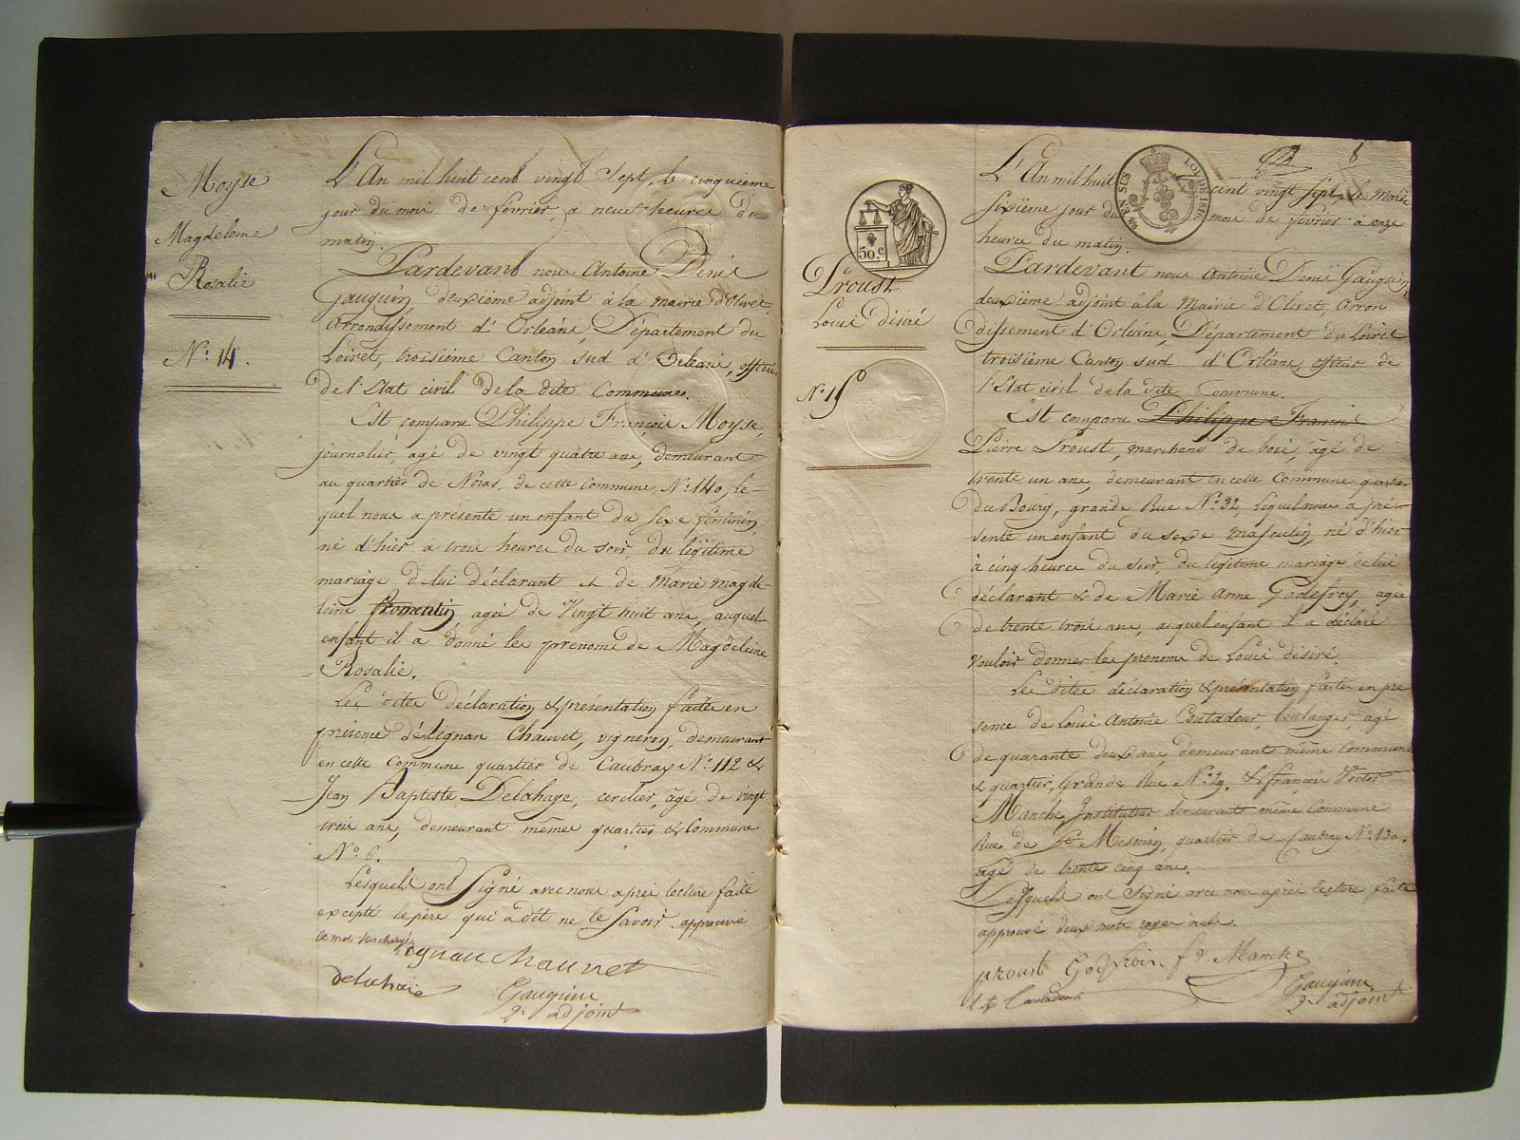 Moyse
Magdeleine
Rosalie
N° 14.
L'An mil huit cent vingt Sept, le cinquieme
jour du mois de fevrier, a neuf heures du
matin.
Pardevant nous Antoine Denis
Gauguin deuxième adjoint à la mairie d'Olivet
Arrondissement d'Orléans, Département du
Loiret, troisième Canton sud d'Orléans, officier
de l'Etat civil de la dite Commune.
Est comparu Philippe François Moyse,
journalier, agé de vingt quatre ans, demeurant
au quartier de Noras, de cette Commune, N° 140, le-
quel nous a présenté un enfant du sexe féminin,
né d'hier à trois heures du soir du légitime
mariage de lui déclarant et de Marie Magde-
leine fromentin, agée de Vingt huit ans, auquel
enfant il a donné les prenoms de Magdeleine
Rosalie.
Les dites déclaration & présentation faites en
présence d'Aignan Chauvet, vigneron, demeurant
en cette Commune quartier de Caubray N° 112 &
Jean Baptiste Delahaye, cerclier, âgé de vingt
trois ans, demeurant mêmes quartier & Commune
N° 6.
Lesquels ont Signé avec nous après lecture faite
excepté le père qui a dit ne le Savoir approuvé
le mot
Chauvet
delahaie
Gauguin
2e adjoint
8
EN SUS
LOI DE 1816
50 c
Proust
Louis désiré
N° 15
L'An mil huit cent vingt sept, le Mardi
sixième jour du mois de février à onze
heures du matin.
Pardevant nous Antoine Denis Gauguin,
deuxième adjoint à la Mairie d'Olivet, Arron
dissement d'Orléans, Département du Loiret
troisième Canton sud d'Orléans, officier de
l'Etat civil de la dite Commune.
Est comparu Philippe Francois
Pierre Proust, marchand de bois, âgé de
trente un ans, demeurant en cette Commune quartier
du Bourg, grande Rue N° 32, lequel nous a pré-
senté un enfant du sexe masculin, né d'hier
à cinq heures du soir, du légitime mariage de lui
déclarant & de Marie Anne Godefroy, agée
de trente trois ans, auquel enfant il a déclaré
vouloir donner les prenoms de Louis désiré.
Les dites déclaration & présentation faites en pré
sence de Louis Antoine Coutadeur, boulanger agé
de quarante deux ans, demeurant même Commune
& quartier, Grande Rue N° & françois
Manche, Instituteur demeurant même Commune
Rue de St Mesmin, quartier de Caubray N° 130.
agé de trente cinq ans.
Lesquels ont Signé avec nous après lecture faite
approuvé deux mots rayés nuls.
proust Godefroi Manche
Gauguin
2e adjoint